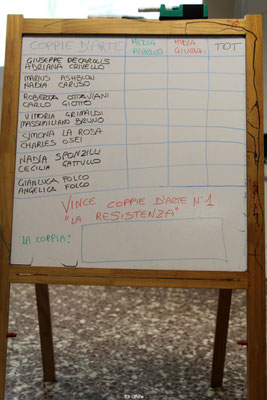 COPPIE D'ARTE MEDIA PUBBLICO MEDIA GIURIA TOT
GIUSEPPE DECAROLIS
ADRIANA CRIVELLO
MARIUS ASHBLON
NADIA CARUSO
ROBERTA OTTAVIANI
CARLO GIOTTO
VITTORIA GRIMALDI
MASSIMILIANO BRUNO
SIMONA LA ROSA
CHARLES OSEI
NADIA SPONZILLI
CECILIA GATTULLO
GIANLUCA FOLCO
ANGELICA FOLCO
VINCE COPPIE D'ARTE N°1
"LA RESISTENZA"
LA COPPIA: